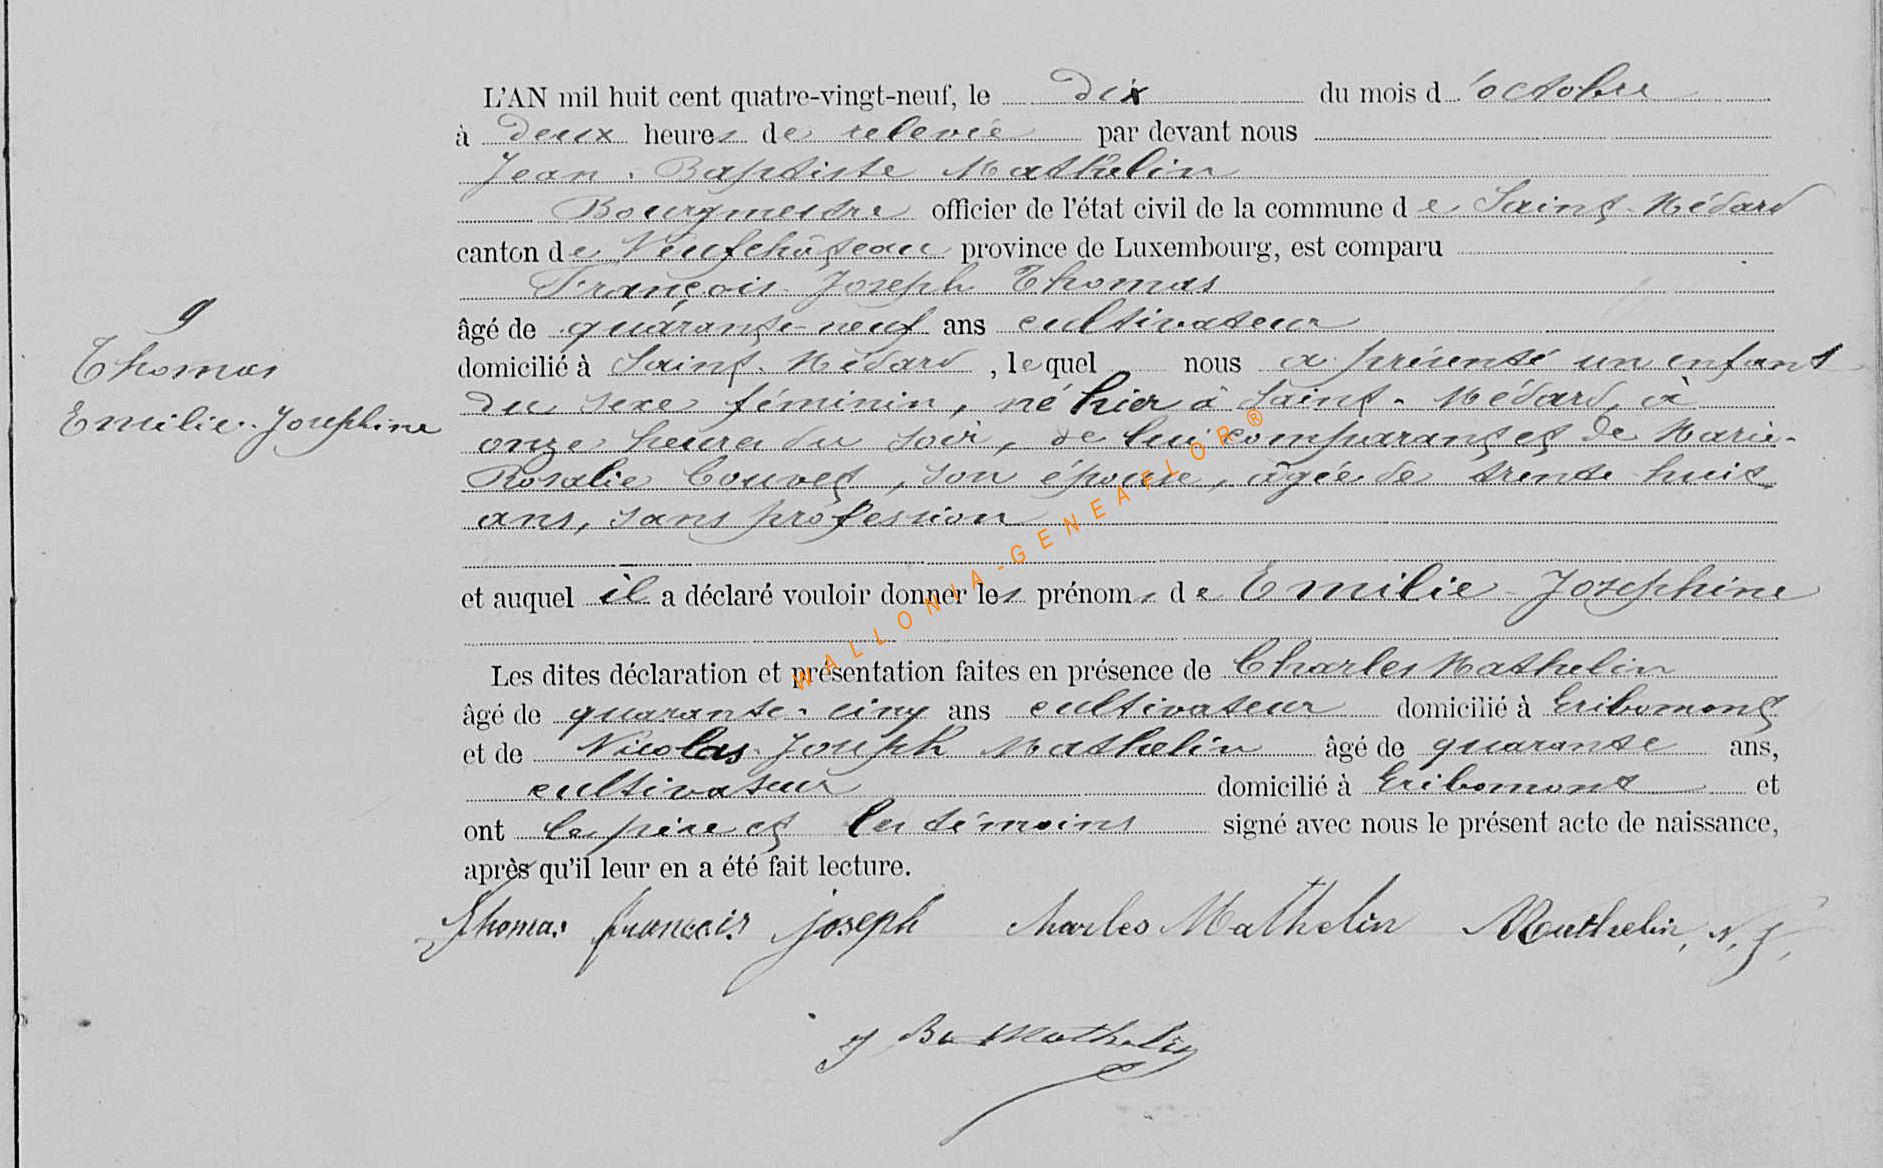 L'AN mil huit cent quatre-vingt-neuf, le dix du mois d'octobre
à deux heures de relevée par devant nous
Jean-Baptiste Mathelin
Bourgmestre officier de l'état civil de la commune de Saint-Médard
canton de Neufchâteau province de Luxembourg, est comparu
François-Joseph Thomas
âgé de quarante-neuf ans cultivateur
domicilié à Saint-Médard, lequel nous a présenté un enfant
du sexe féminin, né hier à Saint-Médard, à
onze heures du soir, de lui comparant et de Marie-
Rosalie Couvet, son épouse, âgée de trente-huit
ans, sans profession
et auquel il a déclaré vouloir donner les prénoms de Emilie-Josephine
Les dites déclaration et présentation faites en présence de Charles Mathelin
âgé de quarante-cinq ans cultivateur domicilié à Gribomont
et de Nicolas-Joseph Mathelin âgé de quarante ans,
cultivateur domicilié à Gribomont et
ont le père et les témoins signé avec nous le présent acte de naissance,
après qu'il leur en a été fait lecture.
Thomas francois joseph Charles Mathelin Mathelin, N. J.
J Bte Mathelin
9
Thomas
Emilie-Josephine
WALLONIA-GENEAFLOR®